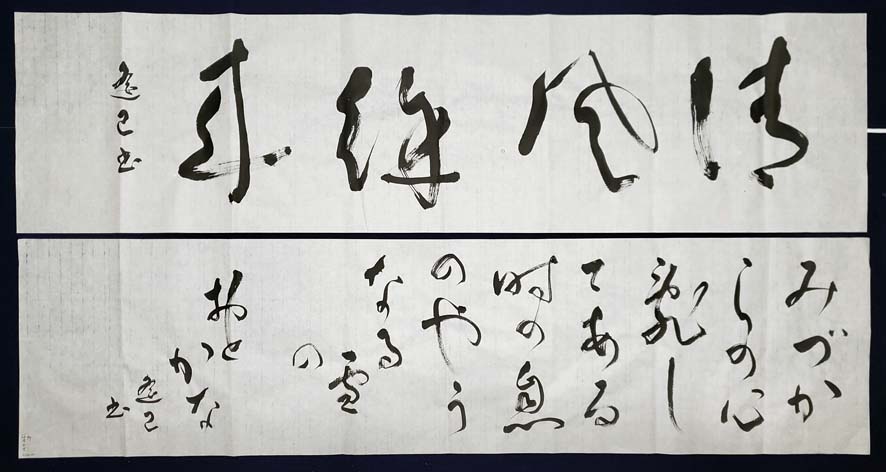 清風徐来
みづか
らの心
亂し
てある
時の息
のやう
なる
雪
の
おと
かな